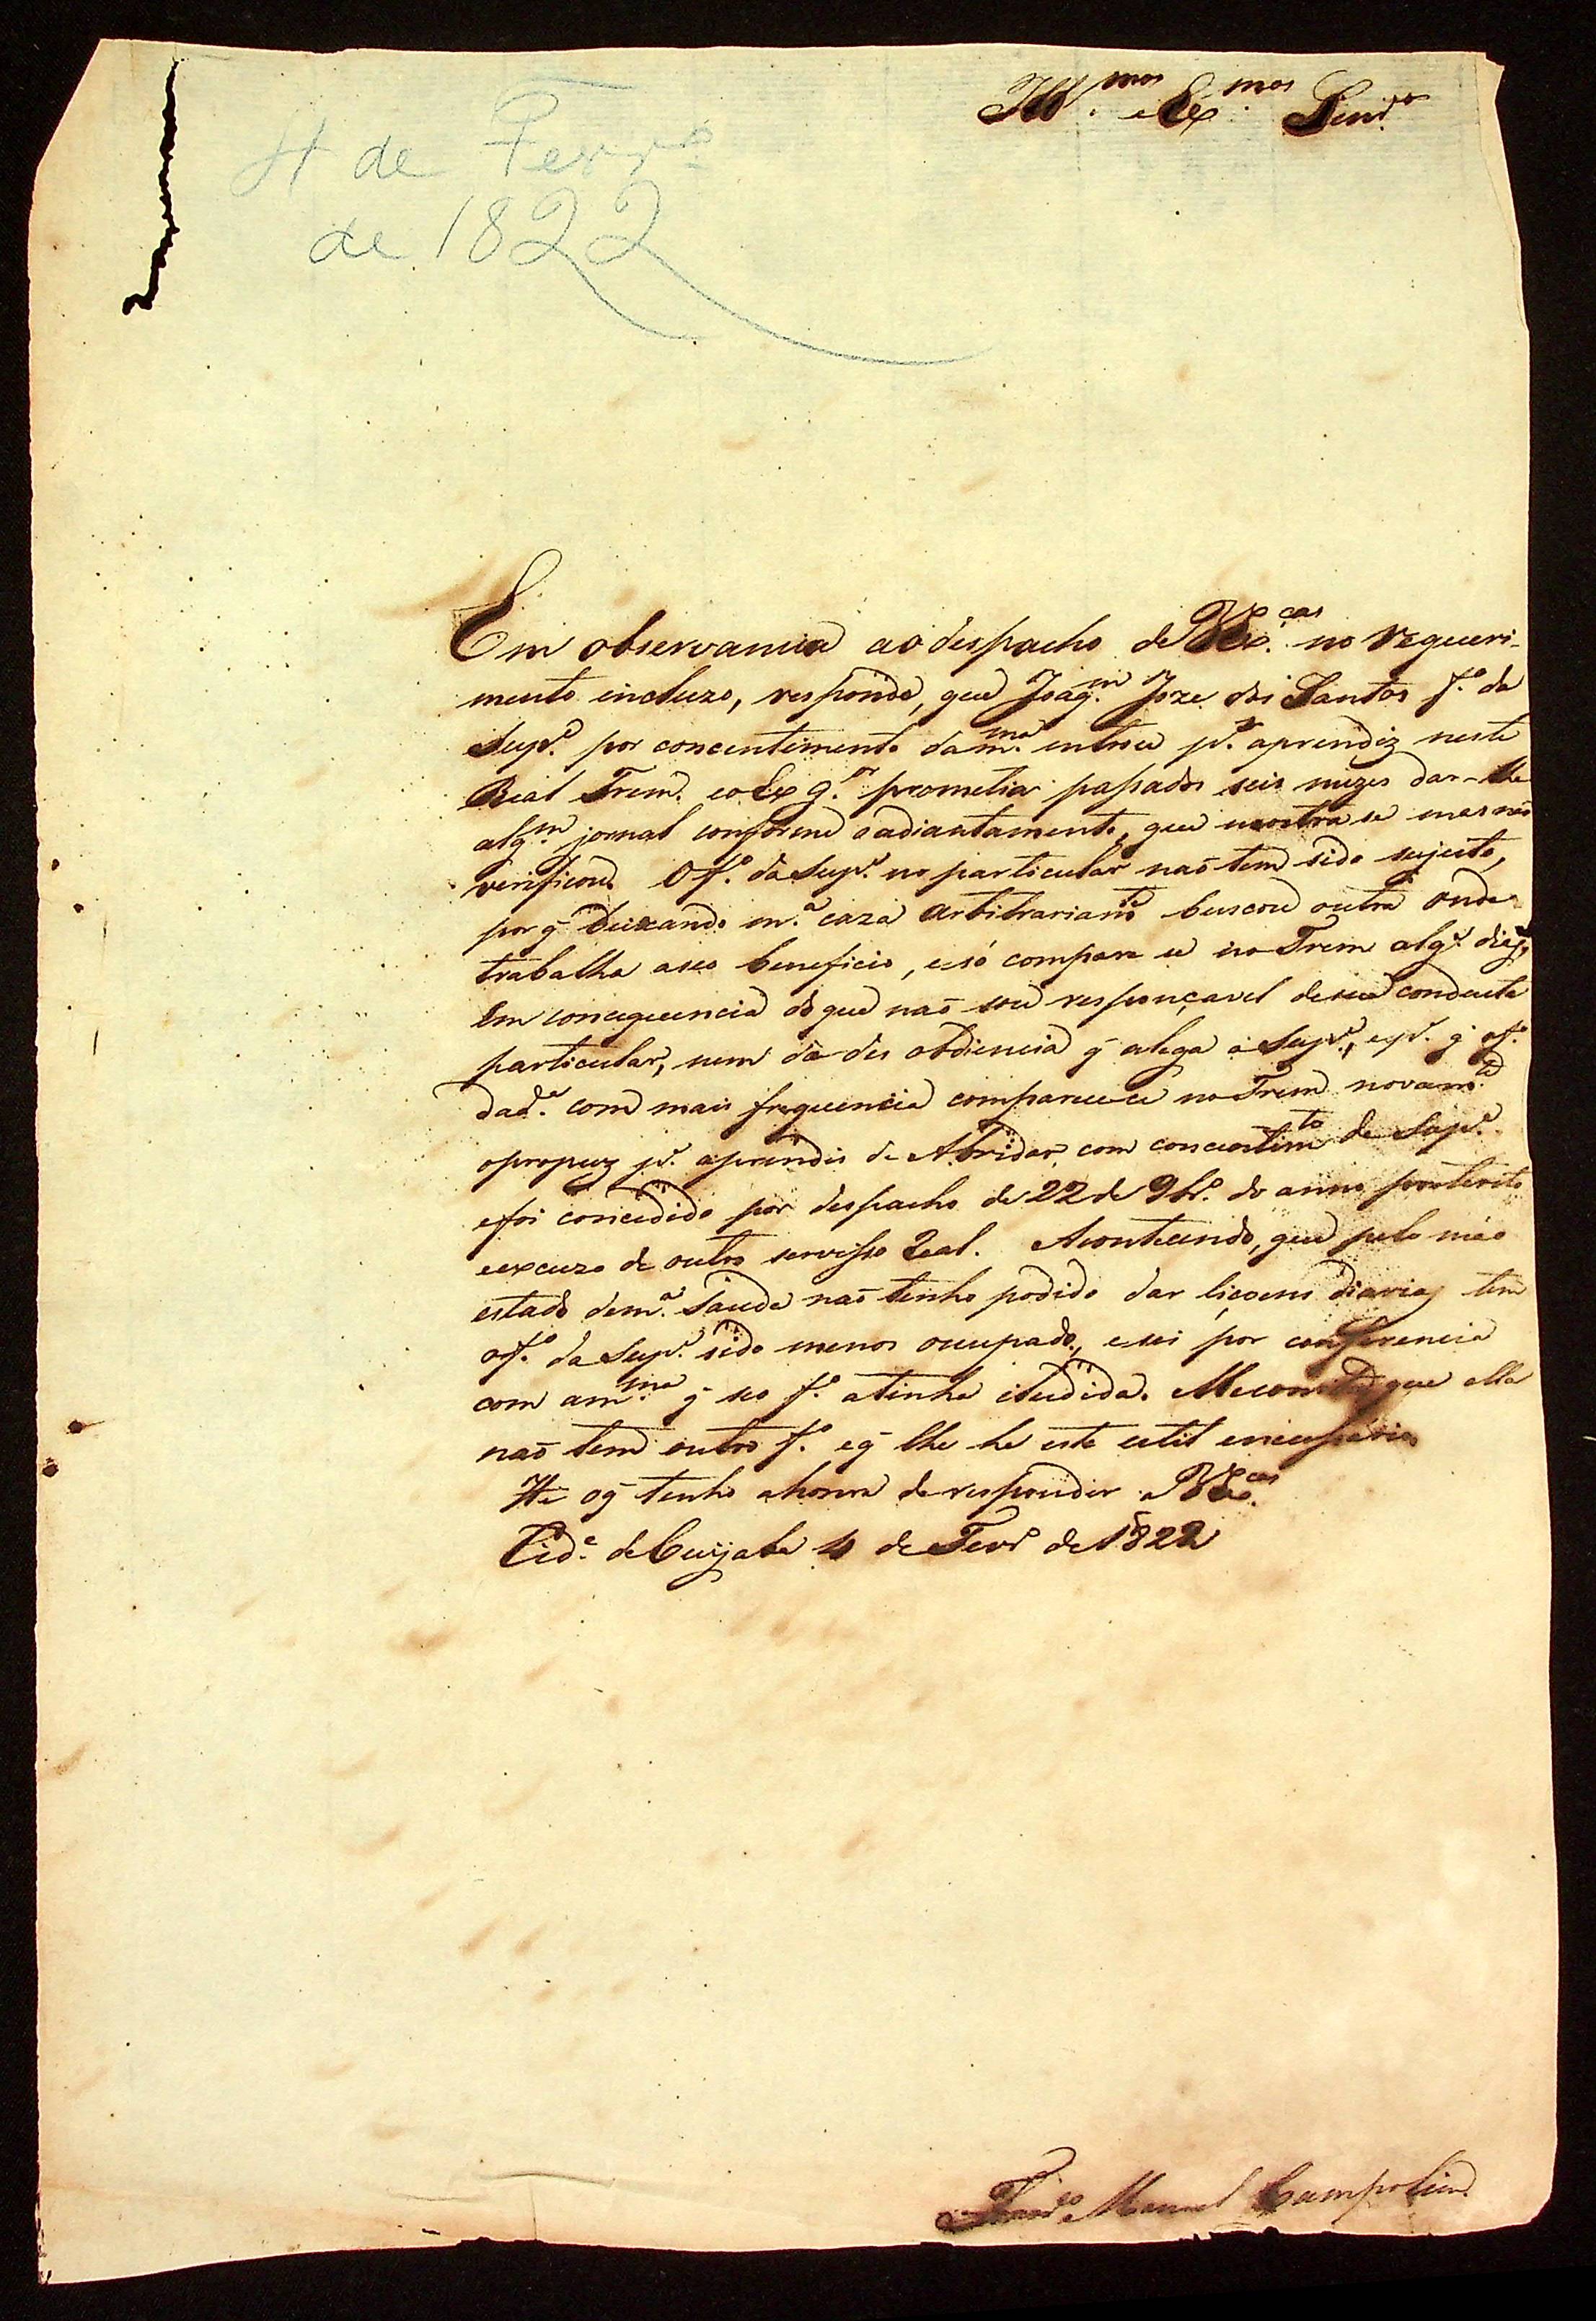 4 de Ferrº
de 1822
Illmos. e Exmos. Senres
Em observancia ao despacho de VExcas. no requeri-
mento incluzo, respondo, que Joaqm. Joze dos Santos fº. da
Supe. por concentimento da mma. entrou pª. aprendiz neste
Real Trem. e o Ex prometia passados seis mezes dar-lhe
algm. jornal conforme o adiantamento, que mostrase mas não
verificou. O fº. da Supe. no particular não tem sido sujeito,
por q̃ deixando mª. caza arbitrariamte buscou outra onde
trabalha a seo beneficio, e só comparece no Trem algs. dias,
Em conceguencia do que não sou responçavel de sua conducta
particular, nem da des obdiencia q̃ alega a Supe., e pª. q̃ o fº.
dadª. com mais frequencia comparecece no Trem novamte
o propuz pª. aprendis de Abridor, com concentimto da Supe.
e foi concedido por despacho de 22 de 9brº. do anno preterito
e excuzo de outro servisso Real. Acontecendo, que pelo máo
estado de mª. Saude não tenho podido dar liçoens diarias tem
o fº. da Supe. sido menos ocupado, e sei por conferencia
com a mma. q̃ seo fº. a tinha iludida. Me consta que ella
não tem outro fº. e q̃ lhe he este util e necessario
He o q̃ tenho a honra de responder a VExcas.
Cide. de Cuyaba 4 de Fevrº de 1822
Manuel Campolim